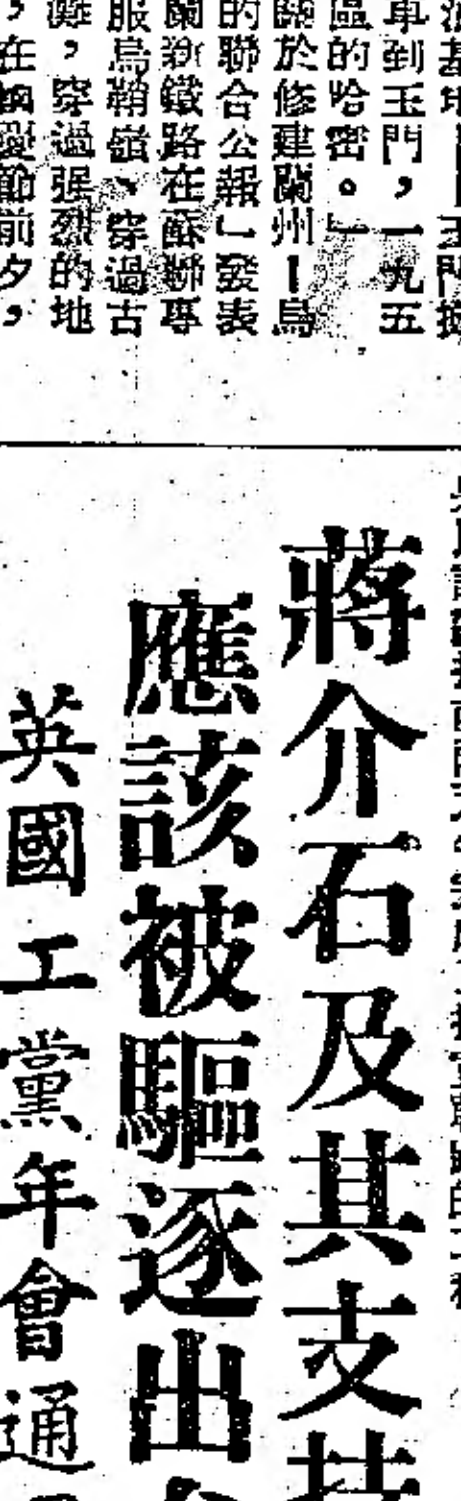 油基地——玉門
車到玉門，一九五
區的哈密。」
關於修建蘭州—烏
的聯合公報」發表
蘭新鐵路在蘇聯專
服烏鞘嶺、穿過古
灘，穿過强烈的地
，在國慶節前夕，
蔣介石及其支持
應該被驅逐出
英國工黨年會通